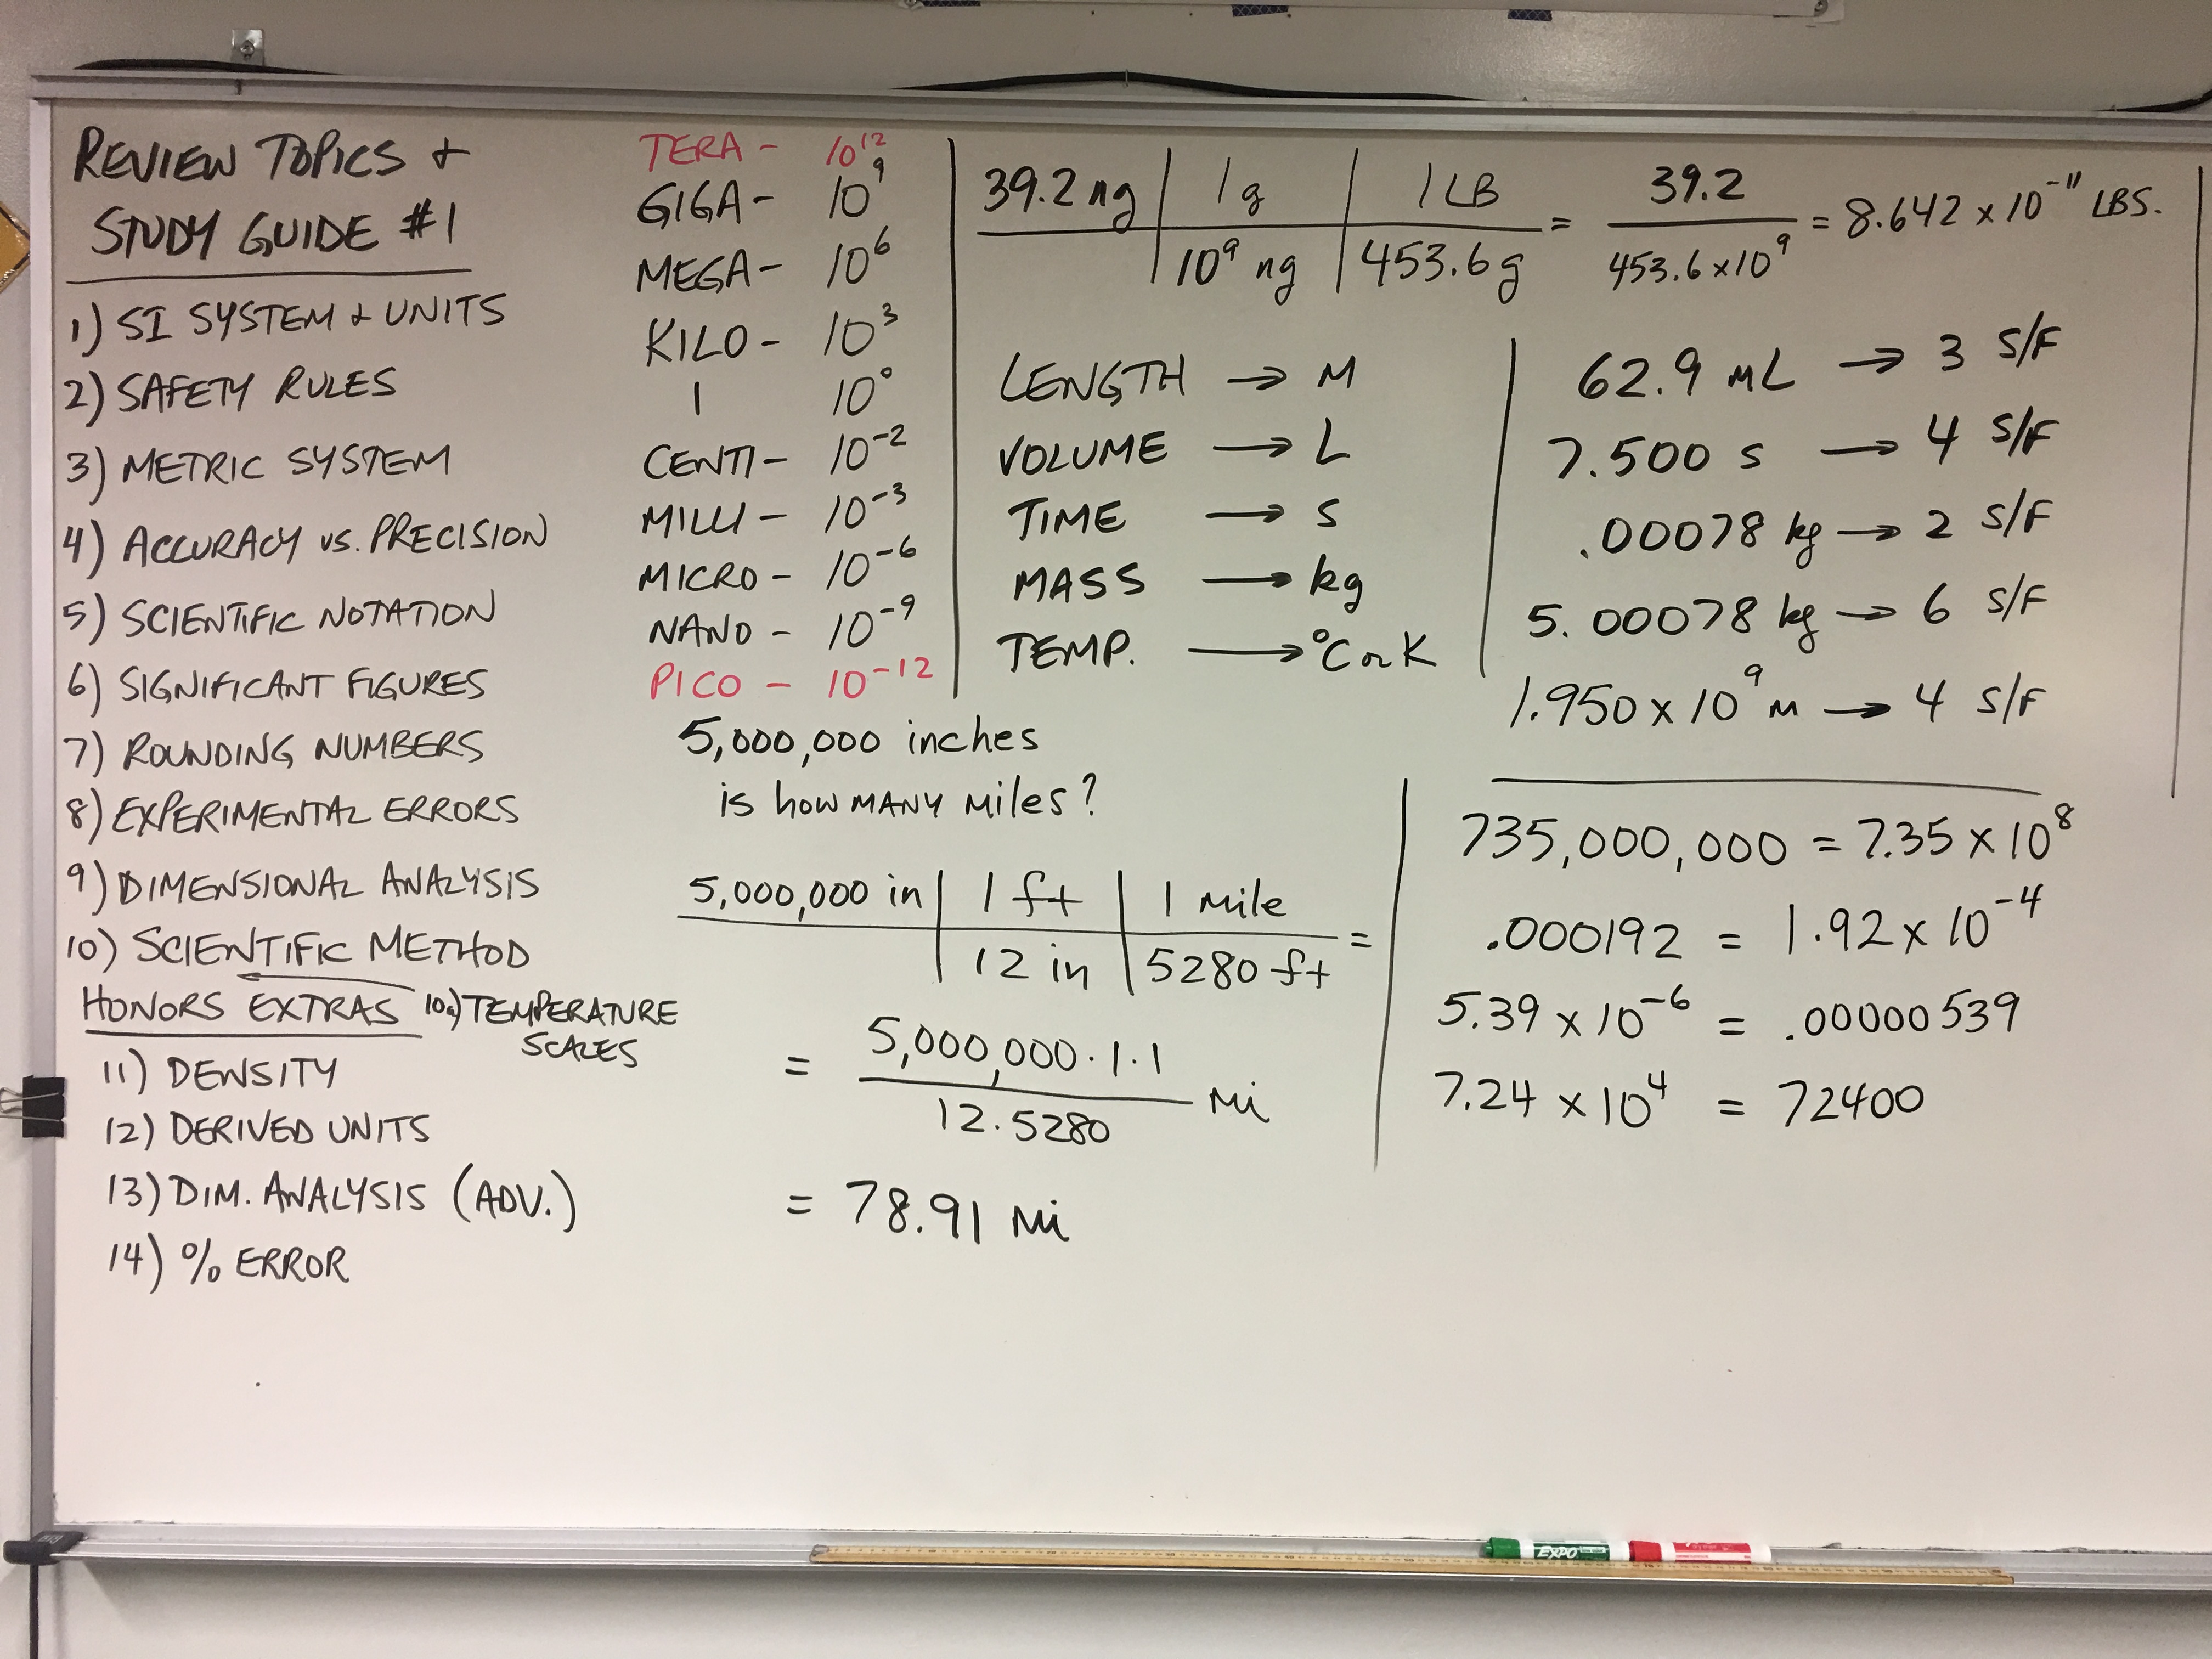 REVIEW TOPICS +
STUDY GUIDE #1
1) SI SYSTEM + UNITS
2) SAFETY RULES
3) METRIC SYSTEM
4) ACCURACY vs. PRECISION
5) SCIENTIFIC NOTATION
6) SIGNIFICANT FIGURES
7) ROUNDING NUMBERS
8) EXPERIMENTAL ERRORS
9) DIMENSIONAL ANALYSIS
10) SCIENTIFIC METHOD
HONORS EXTRAS
10a) TEMPERATURE
SCALES
11) DENSITY
12) DERIVED UNITS
13) DIM. ANALYSIS (ADV.)
14) % ERROR
TERA - 10¹²
GIGA - 10⁹
MEGA - 10⁶
KILO - 10³
1 10⁰
CENTI - 10⁻²
MILLI - 10⁻³
MICRO - 10⁻⁶
NANO - 10⁻⁹
PICO - 10⁻¹²
39.2 ng | 1 g | 1 LB = 39.2 = 8.642 x 10⁻¹¹ LBS.
10⁹ ng | 453.6 g 453.6 x 10⁹
LENGTH → M
VOLUME → L
TIME → s
MASS → kg
TEMP. → °C or K
62.9 mL → 3 S/F
7.500 s → 4 S/F
.00078 kg → 2 S/F
5.00078 kg → 6 S/F
1.950 x 10⁹ m → 4 S/F
5,000,000 inches
is how MANY Miles?
5,000,000 in | 1 ft | 1 Mile =
12 in | 5280 ft
= 5,000,000 · 1 · 1 Mi
12 · 5280
= 78.91 Mi
735,000,000 = 7.35 x 10⁸
.000192 = 1.92 x 10⁻⁴
5.39 x 10⁻⁶ = .00000539
7.24 x 10⁴ = 72400
EXPO